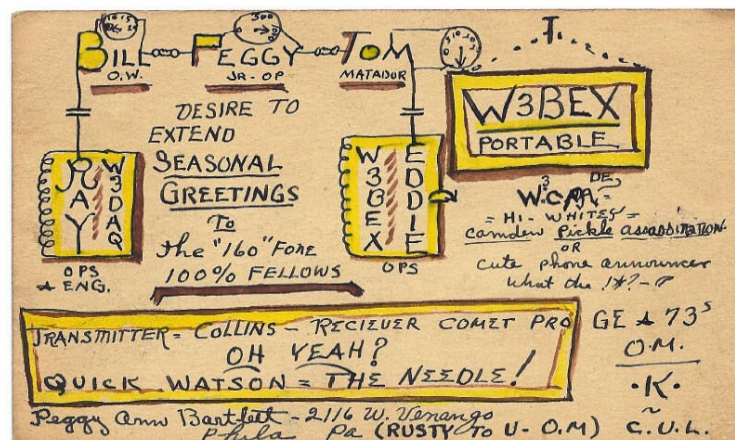 BILL PEGGY TOM
O.W. JR-OP MATADOR
DESIRE TO
EXTEND
SEASONAL
GREETINGS
TO
the "160" FONE
100% FELLOWS
RAY W3DAQ
OPS
& ENG.
W3BEX EDDIE
OPS
W3BEX
PORTABLE
DE
= HI- WHITEY =
Camden Pickle assassination
OR
cute phone announcer
What the !*?-
TRANSMITTER = COLLINS - RECIEVER COMET PRO
OH YEAH?
QUICK WATSON = THE NEEDLE!
GE & 73s
O.M.
·K·
C.U.L.
Peggy Ann Bartlett - 2116 W. Venango
Phila Pa (RUSTY TO U- O.M)